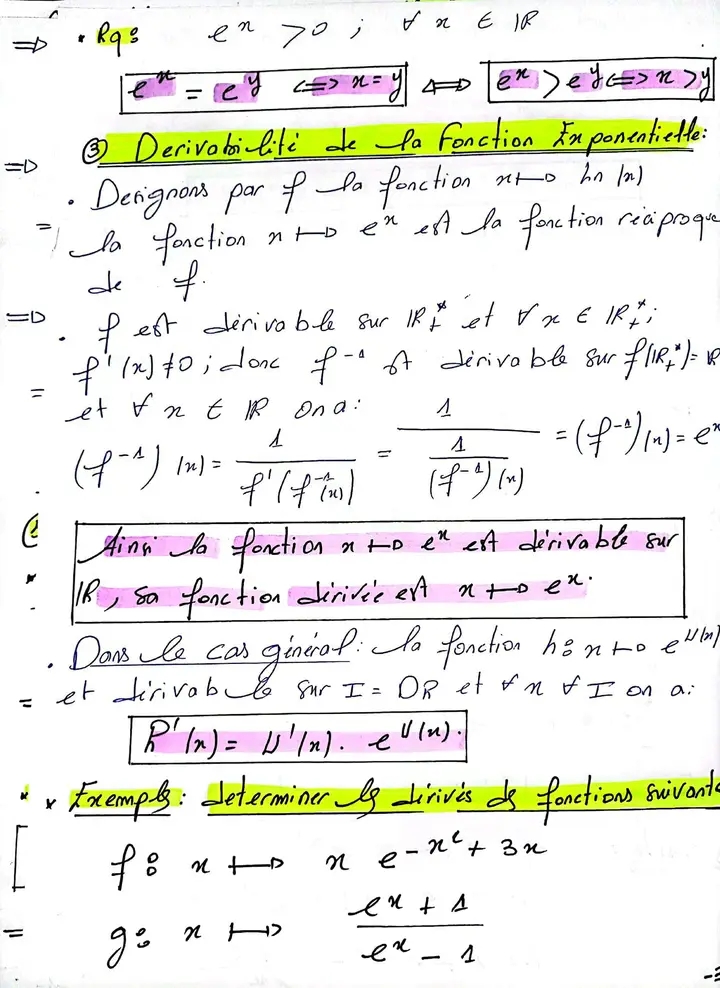 ⇒ • Rq: eˣ > 0 ; ∀ x ∈ IR
eˣ = eʸ ⇔ x = y ⇔ eˣ > eʸ ⇔ x > y
⇒ ③ Derivabilité de la Fonction Exponentielle:
. Designons par f la fonction x ↦ ln(x)
= la fonction x ↦ eˣ est la fonction réciproque
de f.
⇒ . f est dérivable sur IR₊* et ∀ x ∈ IR₊*;
= f'(x) ≠ 0 ; donc f⁻¹ est dérivable sur f(IR₊*) = IR
et ∀ x ∈ IR on a:
(f⁻¹)(x) = 1 / f'(f⁻¹(x)) = 1 / (1 / (f⁻¹)(x)) = (f⁻¹)(x) = eˣ
Ainsi la fonction x ↦ eˣ est dérivable sur
IR, sa fonction dérivée est x ↦ eˣ.
. Dans le cas général: la fonction h: x ↦ e^U(x)
= et dérivable sur I = DR et ∀ x ∀ I on a:
h'(x) = U'(x). e^U(x).
* * Exemple: determiner les dérivés des fonctions suivante
f: x ↦ x e^-x² + 3x
= g: x ↦ (eˣ + 1) / (eˣ - 1)